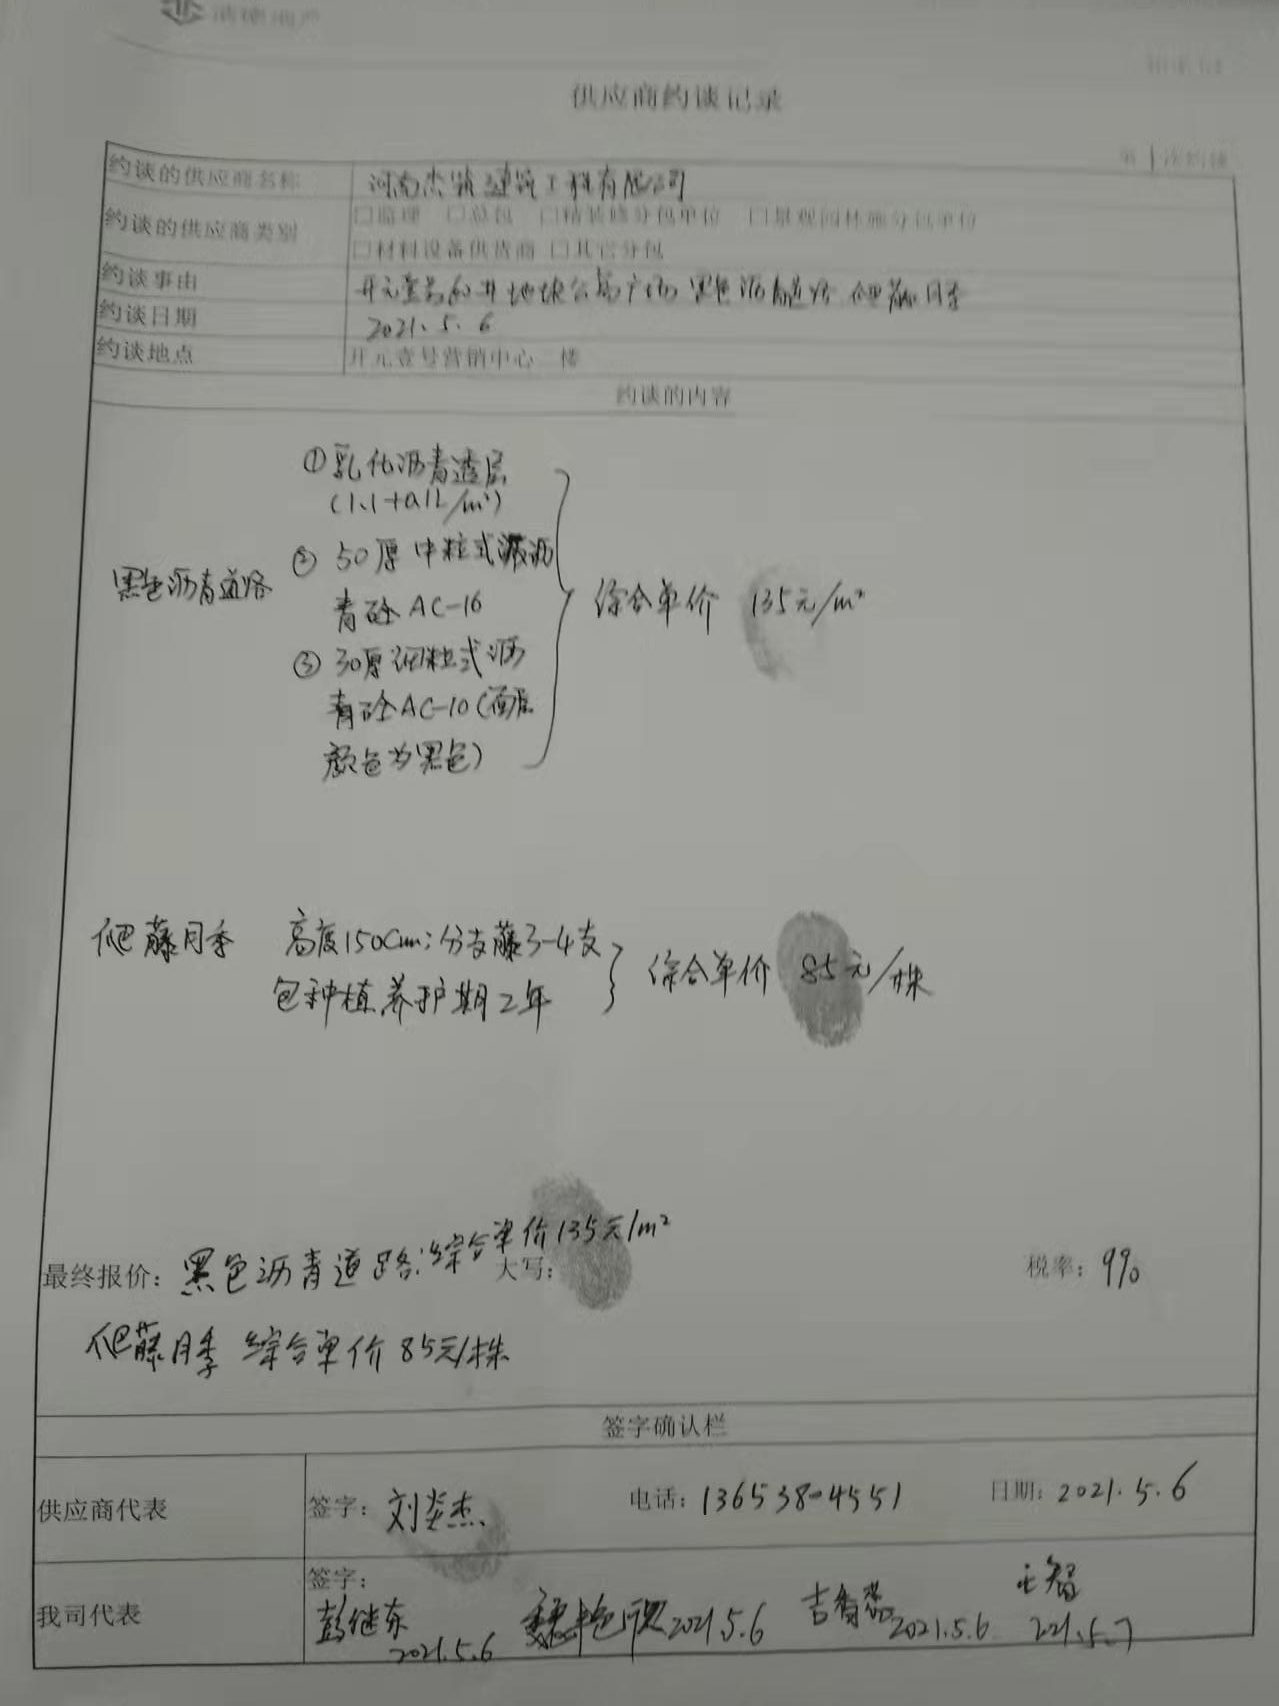 供应商约谈记录
第1次约谈
约谈的供应商名称 河南杰筑建筑工程有限公司
约谈的供应商类别 □监理 □总包 □精装修分包单位 □景观园林施分包单位
□材料设备供货商 □其它分包
约谈事由 开元壹号 地块公寓广场 黑色沥青道路 爬藤月季
约谈日期 2021.5.6
约谈地点 开元壹号营销中心二楼
约谈的内容
①乳化沥青透层
(1.1+0.1L/m²)
② 50厚中粒式沥
黑色沥青道路
青砼AC-16
综合单价 135元/m²
③ 30厚细粒式沥
青砼AC-10(面层
颜色为黑色)
爬藤月季 高度150cm;分支藤3-4支
包种植,养护期2年 综合单价 85元/株
最终报价: 黑色沥青道路:综合单价135元/m² 大写: 税率: 9%
爬藤月季 综合单价85元/株
签字确认栏
供应商代表 签字: 刘炎杰 电话: 日期: 2021.5.6
我司代表 签字:
彭继东 2021.5.6 2021.5.6 2021.5.6 王智 2021.5.7